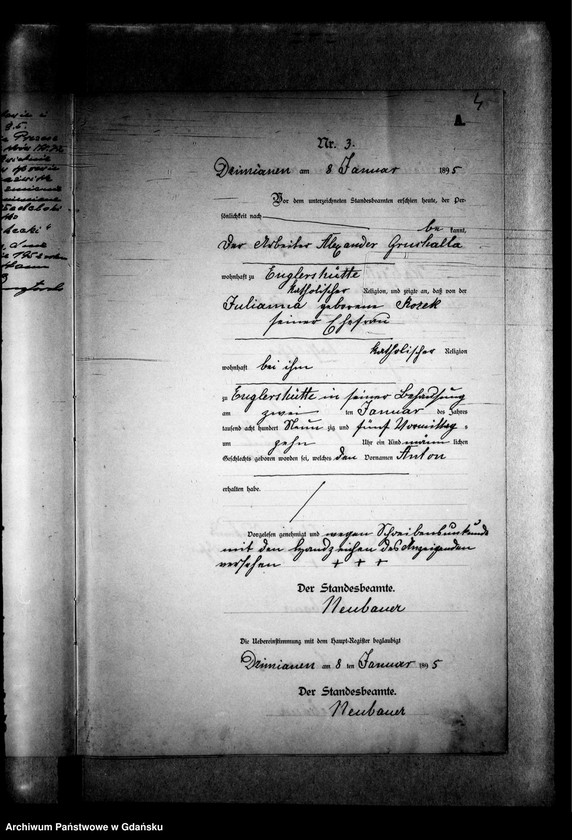 4
A.
Nr. 3.
Dzimianen am 8 Januar 1895
Vor dem unterzeichneten Standesbeamten erschien heute, der Per-
sönlichkeit nach
be kannt,
Der Arbeiter Alexander Gruchalla
wohnhaft zu Englershütte
katholischer Religion, und zeigte an, daß von der
Julianna geborene
seiner Ehefrau
katholischer Religion
wohnhaft bei ihm
zu Englershütte in seiner Behausung
am zwei ten Januar des Jahres
tausend acht hundert Neun zig und fünf Vormittag s
um zehn Uhr ein Kind männ lichen
Geschlechts geboren worden sei, welches den Vornamen Anton
erhalten habe.
Vorgelesen genehmigt und wegen Schreibensunkunde
mit den Handzeichen des Anzeigenden
versehen + + +
Der Standesbeamte.
Neubauer
Die Uebereinstimmung mit dem Haupt-Register beglaubigt
Dzimianen am 8 ten Januar 1895
Der Standesbeamte.
Neubauer
Archiwum Państwowe w Gdańsku